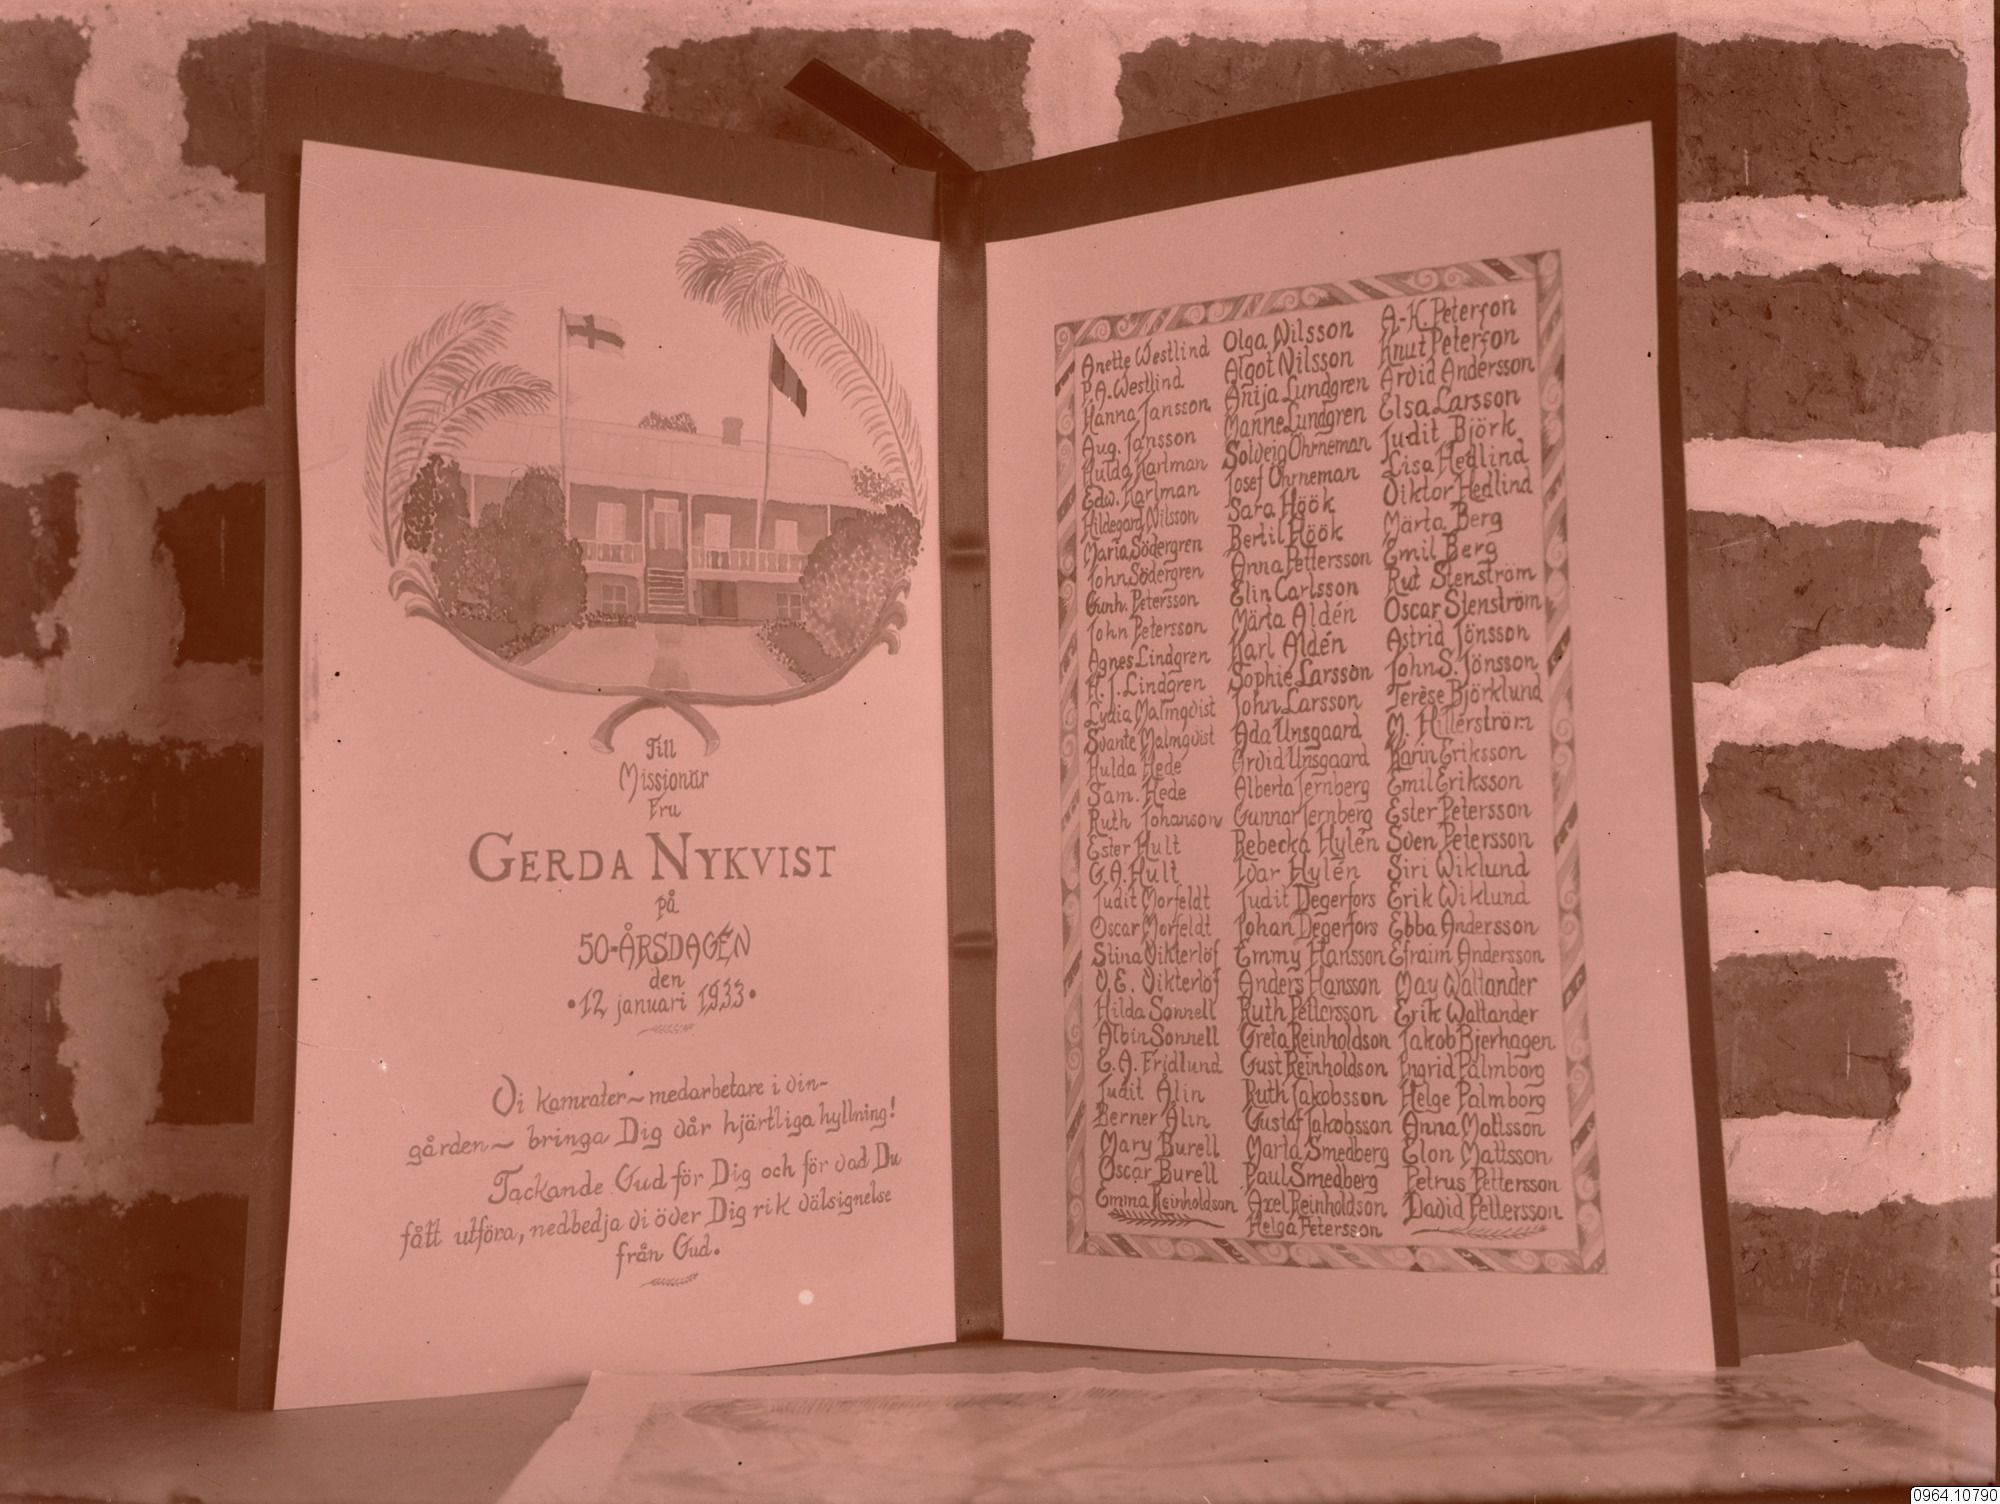 Till
Missionär
Fru
GERDA NYKVIST
på
50-ÅRSDAGEN
den
•12 januari 1933•
Vi kamrater~medarbetare i vin-
gården~ bringa Dig vår hjärtliga hyllning!
Tackande Gud för Dig och för vad Du
fått utföra, nedbedja vi över Dig rik välsignelse
från Gud.
Anette Westlind
P.A. Westlind
Hanna Jansson
Aug. Jansson
Hulda Karlman
Edw. Karlman
Hildegard Nilsson
Maria Södergren
John Södergren
Gunh. Petersson
John Petersson
Agnes Lindgren
H. J. Lindgren
Lydia Malmqvist
Svante Malmqvist
Hulda Hede
Sam. Hede
Ruth Johanson
Ester Hult
G.A. Hult
Judit Morfeldt
Oscar Morfeldt
Stina Vikterlöf
V. E. Vikterlöf
Hilda Sonnell
Albin Sonnell
E.A. Fridlund
Judit Ålin
Berner Ålin
Mary Burell
Oscar Burell
Emma Reinholdson
Olga Nilsson
Algot Nilsson
Anija Lundgren
Manne Lundgren
Solveig Ohrneman
Josef Ohrneman
Sara Höök
Bertil Höök
Anna Pettersson
Elin Carlsson
Märta Aldén
Karl Aldén
Sophie Larsson
John Larsson
Ada Unsgaard
Arvid Unsgaard
Alberta Jernberg
Gunnar Jernberg
Rebecka Hylén
Ivar Hylén
Judit Degerfors
Johan Degerfors
Emmy Hansson
Anders Hansson
Ruth Pettersson
Greta Reinholdson
Gust Reinholdson
Ruth Jakobsson
Gustaf Jakobsson
Marta Smedberg
Paul Smedberg
Axel Reinholdson
Helga Petersson
A-K. Peterson
Knut Peterson
Arvid Andersson
Elsa Larsson
Judit Björk
Lisa Hedlind
Viktor Hedlind
Märta Berg
Emil Berg
Rut Stenström
Oscar Stenström
Astrid Jönsson
John S. Jönsson
Terèse Björklund
M. Hillerström
Karin Eriksson
Emil Eriksson
Ester Petersson
Sven Petersson
Siri Wiklund
Erik Wiklund
Ebba Andersson
Efraim Andersson
May Waltander
Erik Waltander
Jakob Bjerhagen
Ingrid Palmborg
Helge Palmborg
Anna Mattsson
Elon Mattsson
Petrus Pettersson
David Pettersson
0964.10790